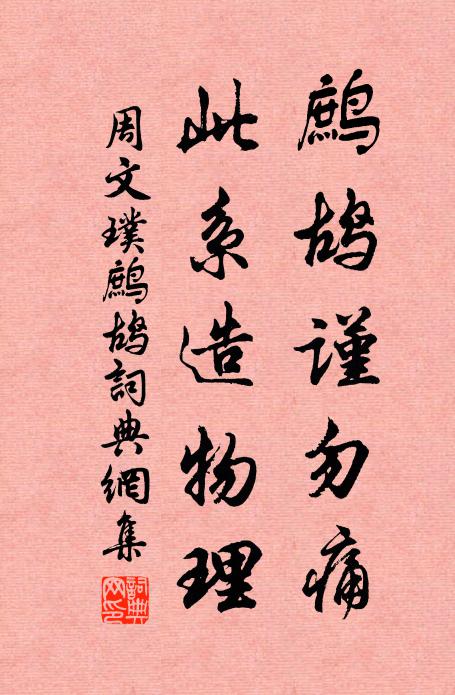 鷓鴣謹勿痛
此系造物理
周文璞鷓鴣詞典網集
詞典網印